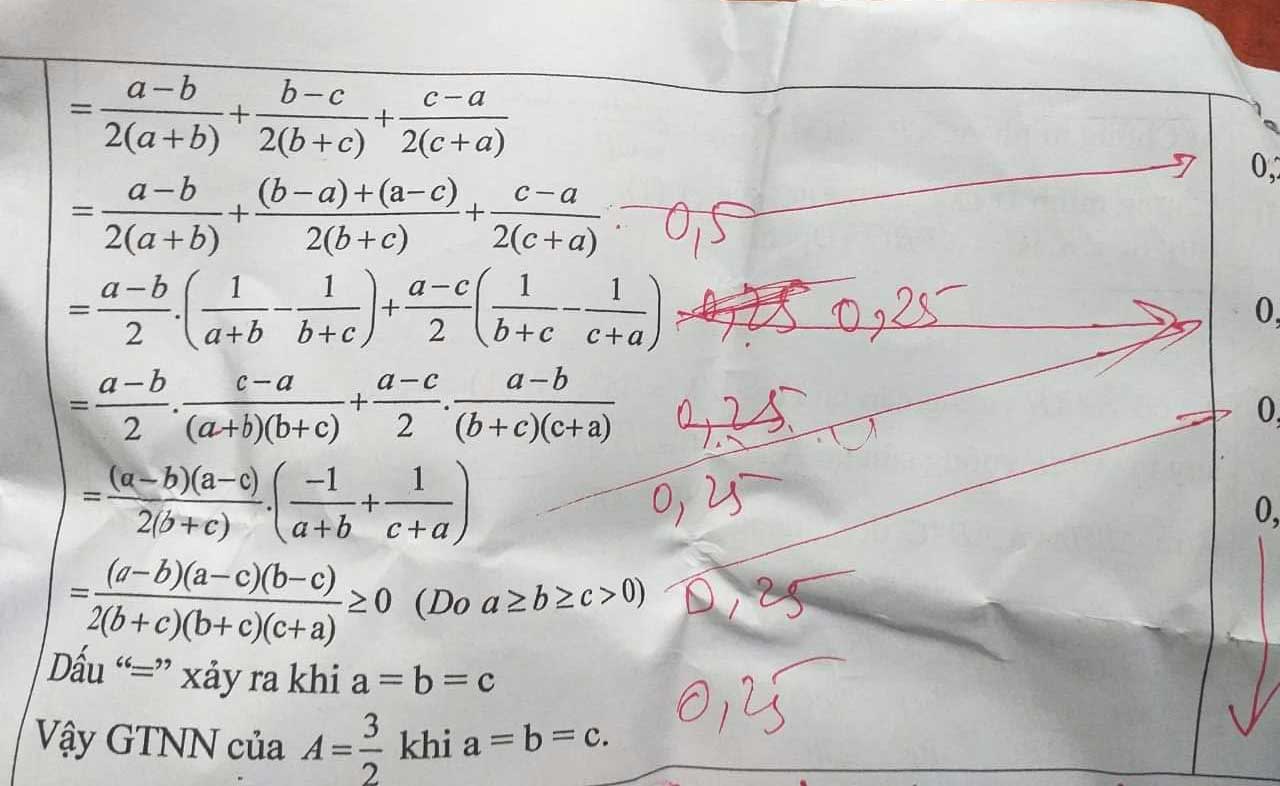 = \frac{a-b}{2(a+b)} + \frac{b-c}{2(b+c)} + \frac{c-a}{2(c+a)}
= \frac{a-b}{2(a+b)} + \frac{(b-a)+(a-c)}{2(b+c)} + \frac{c-a}{2(c+a)} 0,5
= \frac{a-b}{2} . \left( \frac{1}{a+b} - \frac{1}{b+c} \right) + \frac{a-c}{2} \left( \frac{1}{b+c} - \frac{1}{c+a} \right) 0,25 0,
= \frac{a-b}{2} . \frac{c-a}{(a+b)(b+c)} + \frac{a-c}{2} . \frac{a-b}{(b+c)(c+a)} 0,25 0,
= \frac{(a-b)(a-c)}{2(b+c)} . \left( \frac{-1}{a+b} + \frac{1}{c+a} \right) 0,25 0,
= \frac{(a-b)(a-c)(b-c)}{2(b+c)(b+c)(c+a)} ≥ 0 (Do a ≥ b ≥ c > 0) 0,25
Dấu “=” xảy ra khi a = b = c 0,25
Vậy GTNN của A = \frac{3}{2} khi a = b = c.